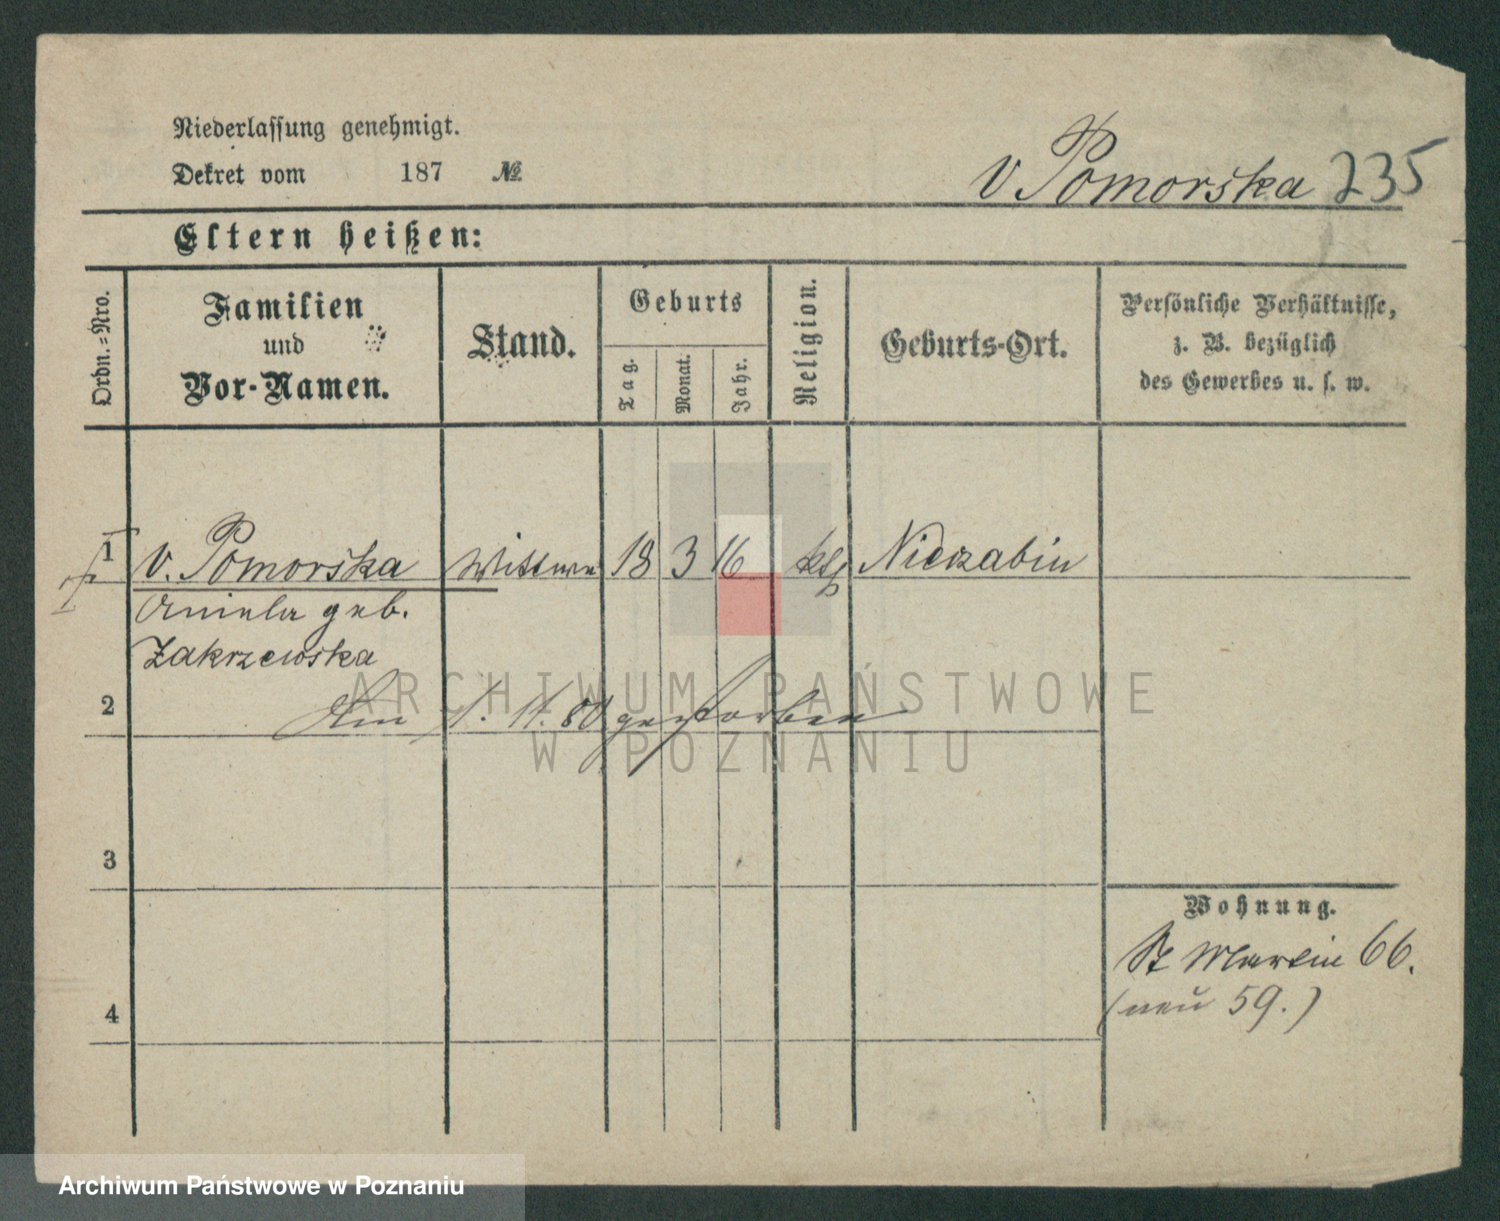 Niederlassung genehmigt.
Dekret vom 187 №
v Pomorska 235
Eltern heißen:
Ordn.=Nro.
Familien
und
Vor-Namen.
Stand.
Geburts
Tag.
Monat.
Jahr.
Religion.
Geburts-Ort.
Persönliche Verhältnisse,
z. B. bezüglich
des Gewerbes u. s. w.
1 v. Pomorska Wittwe 18 3 16 kth Niezabin
Aniela geb.
Zakrzewska
2 Am 1. 11. 80 gestorben
3
4
Wohnung.
St Martin 66.
(neu 59.)
ARCHIWUM PAŃSTWOWE
W POZNANIU
Archiwum Państwowe w Poznaniu